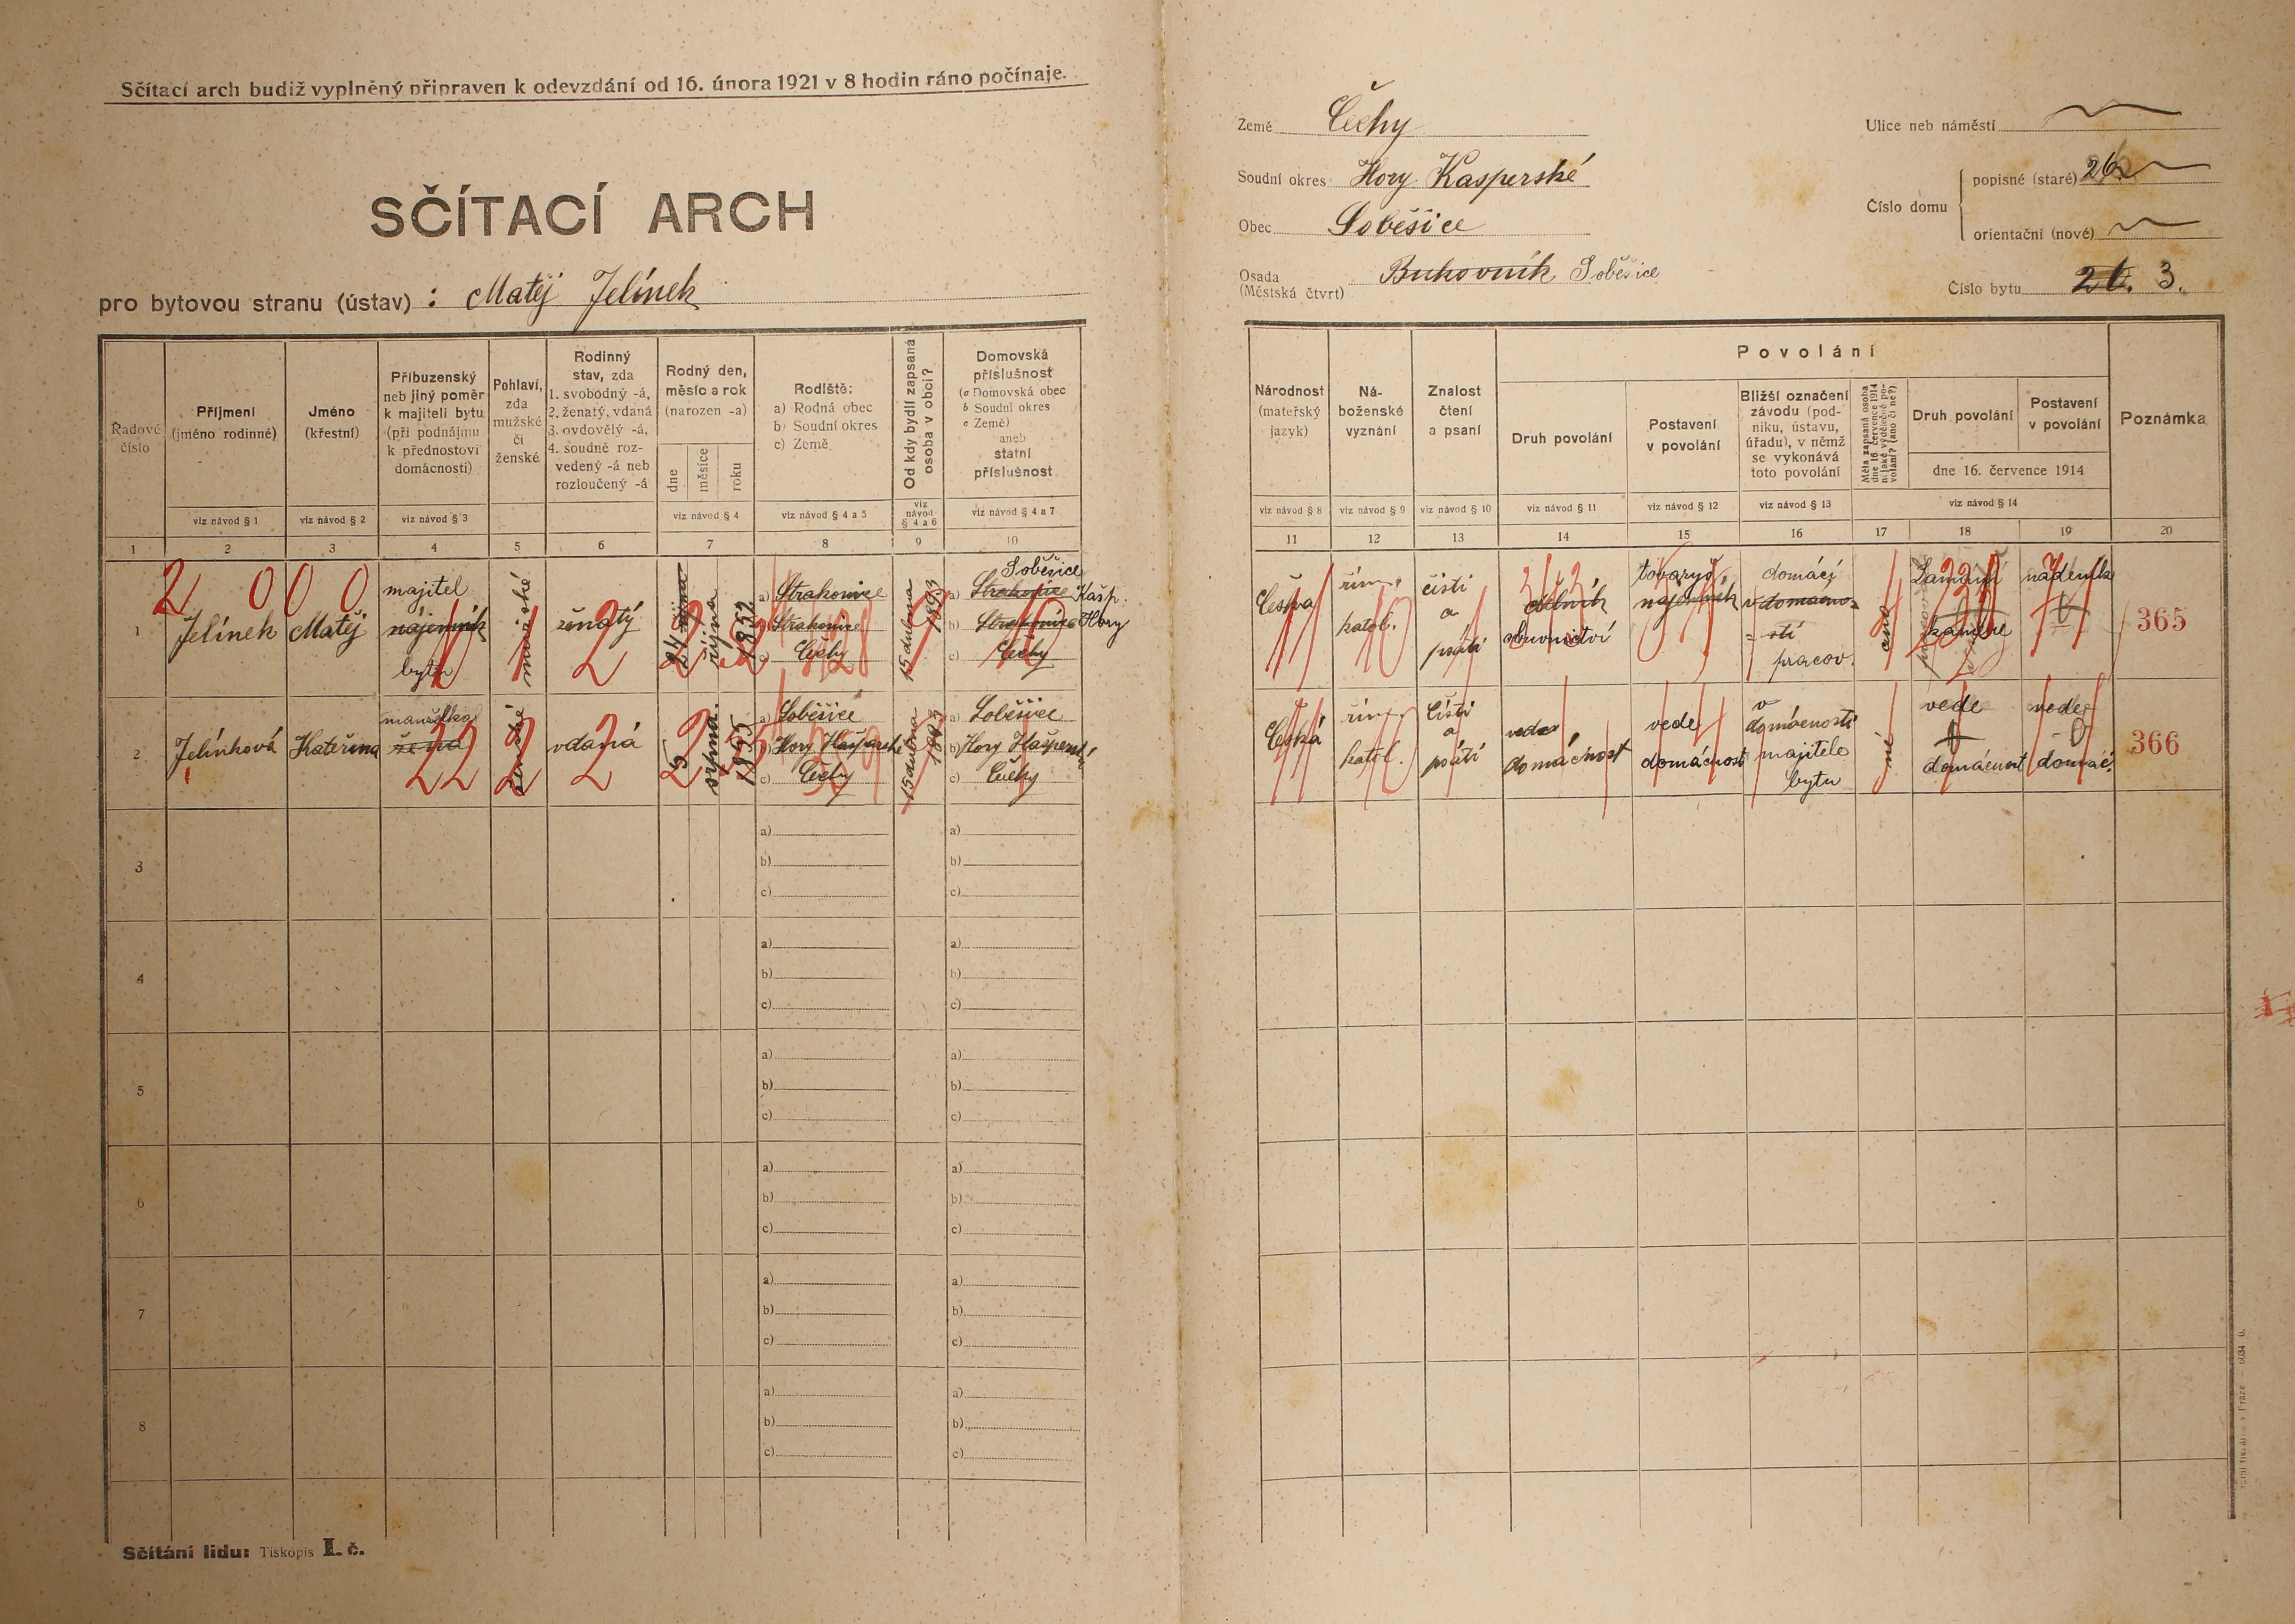 Sčítací arch budiž vyplněný připraven k odevzdání od 16. února 1921 v 8 hodin ráno počínaje.
SČÍTACÍ ARCH
pro bytovou stranu (ústav) : Matěj Jelínek
Země Čechy
Soudní okres Hory Kasperské
Obec Soběšice
Osada
(Městská čtvrt)
Buhovník Soběšice
Ulice neb náměstí
Číslo domu
popisné (staré) 26
orientační (nové)
Číslo bytu 26. 3.
Řadové
číslo
Příjmení
(jméno rodinné)
viz návod § 1
Jméno
(křestní)
viz návod § 2
Příbuzenský
neb jiný poměr
k majiteli bytu
(při podnájmu
k přednostovi
domácnosti)
viz návod § 3
Pohlaví,
zda
mužské
či
ženské
Rodinný
stav, zda
1. svobodný -á,
2. ženatý, vdaná
3. ovdovělý -á,
4. soudně roz-
vedený -á neb
rozloučený -á
Rodný den,
měsíc a rok
(narozen -a)
dne
měsíce
roku
viz návod § 4
Rodiště:
a) Rodná obec
b) Soudní okres
c) Země
viz návod § 4 a 5
Od kdy bydlí zapsaná
osoba v obci?
viz
návod
§ 4 a 6
Domovská
příslušnost
(a Domovská obec
b Soudní okres
c Země)
aneb
státní
příslušnost
viz návod § 4 a 7
1 2 3 4 5 6 7 8 9 10
Národnost
(mateřský
jazyk)
viz návod § 8
Ná-
boženské
vyznání
viz návod § 9
Znalost
čtení
a psaní
viz návod § 10
Povolání
Druh povolání
viz návod § 11
Postavení
v povolání
viz návod § 12
Bližší označení
závodu (pod-
niku, ústavu,
úřadu), v němž
se vykonává
toto povolání
viz návod § 13
Měla zapsaná osoba
dne 16 července 1914
nějaké výdělečné po-
volání? (ano či ne?)
Druh povolání
Postavení
v povolání
dne 16. července 1914
viz návod § 14
Poznámka
11 12 13 14 15 16 17 18 19 20
2 0 0 0
1
Jelínek
Matěj
majitel
nájemník
bytu
mužské
ženatý
2
října
října
1852
a) Strakonice
b) Strakonice
c) Čechy
15 dubna
1893
Soběšice
a) Strakonice Kašp.
b) Strakonice Hory
c) Čechy
Česka
řím.
katol.
čisti
a
psáti
dělník
obuvnictví
tovaryš
nájemník
domácí
v domácno-
stí
pracov.
ano
Lamaní
kamene
nádeník
365
2
Jelínková
Kateřina
manželka
žena
22
ženské
2
vdaná
2
5
srpna
1855
a) Soběšice
b) Hory Kašperské
c) Čechy
15 dubna
1893
a) Soběšice
b) Hory Kašperské
c) Čechy
Česká
řím.
katol.
čísti
a
psáti
vede
domácnost
vede
domácnost
v
domácnosti
majitele
bytu
né
vede
domácnost
vede
domác.
366
3
a)
b)
c)
a)
b)
c)
4
a)
b)
c)
a)
b)
c)
5
a)
b)
c)
a)
b)
c)
6
a)
b)
c)
a)
b)
c)
7
a)
b)
c)
a)
b)
c)
8
a)
b)
c)
a)
b)
c)
Sčítání lidu: Tiskopis I. č.